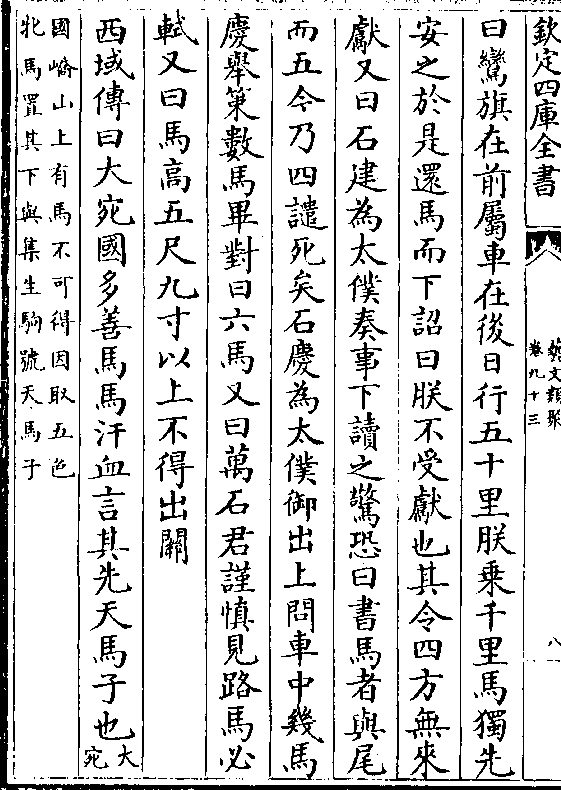 欽定四庫全書
藝文類聚
卷九十三
八
曰鸞旗在前屬車在後日行五十里朕乗千里馬獨先
安之於是還馬而下詔曰朕不受獻也其令四方無來
獻又曰石建為太僕奏事下讀之驚恐曰書馬者與尾
而五今乃四譴死矣石慶為太僕御出上問車中幾馬
慶舉策數馬畢對曰六馬又曰萬石君謹慎見路馬必
軾又曰馬高五尺九寸以上不得出關
西域傳曰大宛國多善馬馬汗血言其先天馬子也大宛
國嶠山上有馬不可得因取五色
牝馬置其下與集生駒號天馬子